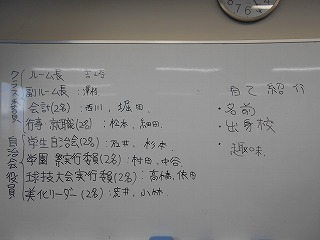 クラス委員
ルーム長
副ルーム長 :
会計(2名) : 西川, 堀田
行事 就職(2名) : 松本, 細田
自治会役員
学生自治会(2名) : 石井, 杉本
学園祭実行委員(2名) : 村田, 中谷
球技大会実行委員(2名) : 高橋, 依田
美化リーダー(2名) : 荒井, 小林
自己紹介
・名前
・出身校
・趣味